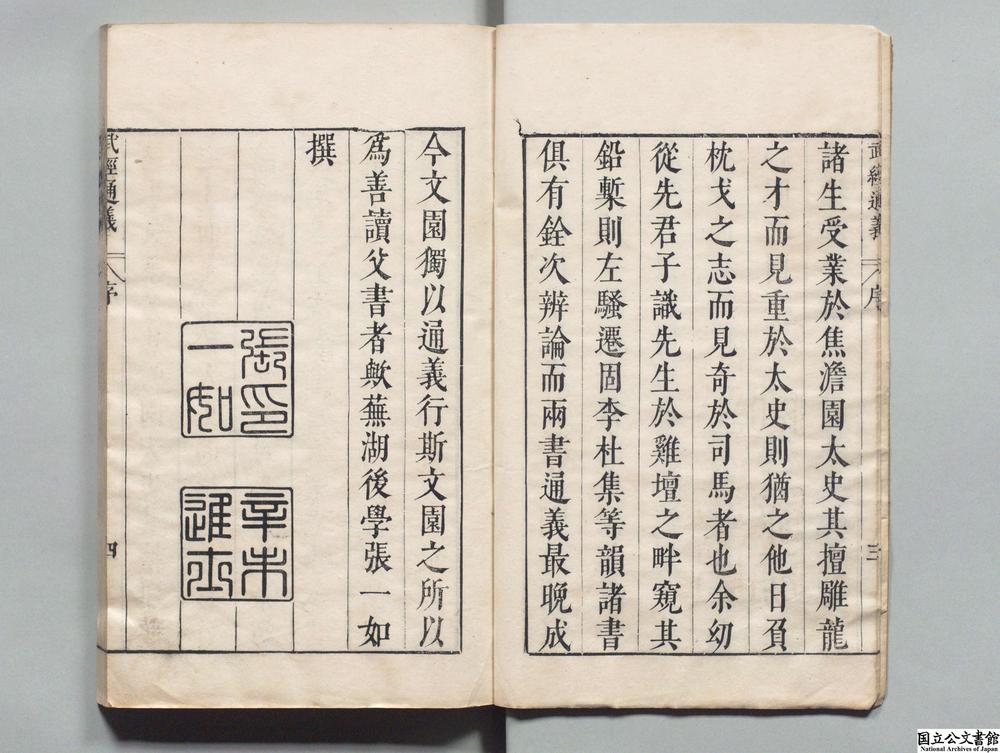 武經通義
序
三
諸生受業於焦澹園太史其擅雕龍
之才而見重於太史則猶之他日負
枕戈之志而見奇於司馬者也余幼
從先君子識先生於雞壇之畔窺其
鉛槧則左騷遷固李杜集等韻諸書
俱有銓次辨論而兩書通義最晚成
今文園獨以通義行斯文園之所以
為善讀父書者歟蕪湖後學張一如
撰
張印
一如
辛未
進士
武經通義
序
四
国立公文書館
National Archives of Japan